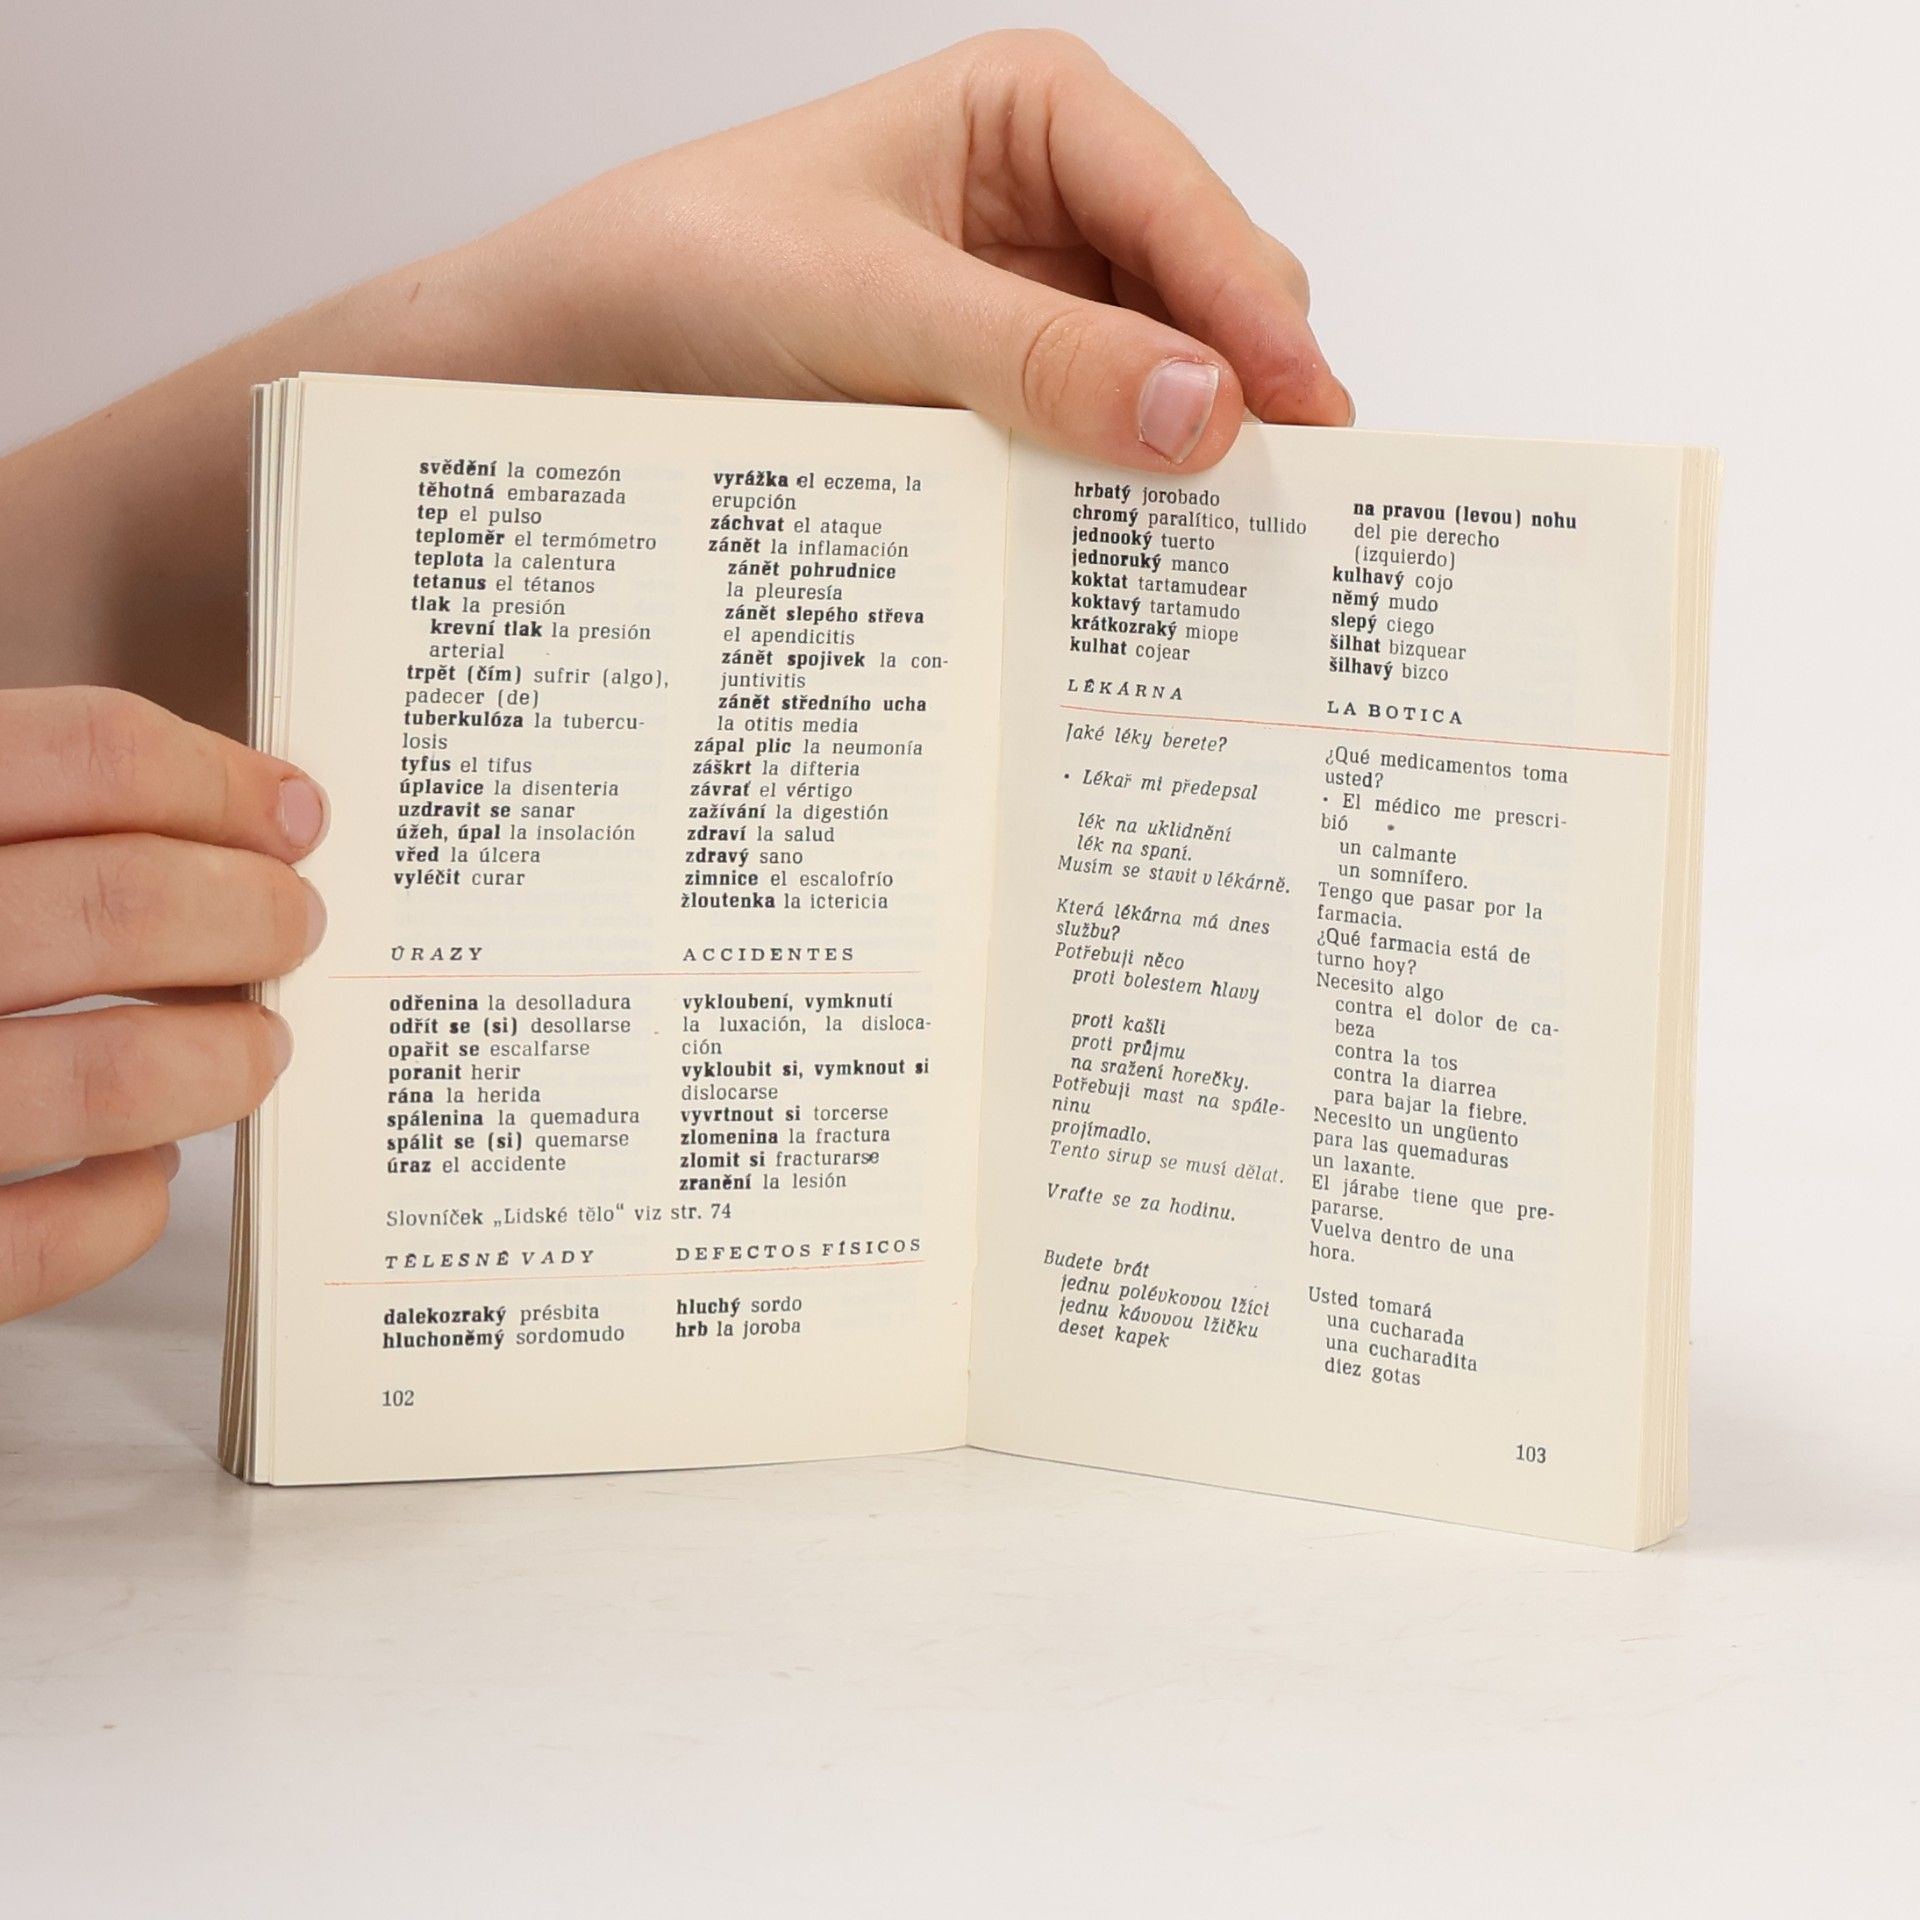 svědění la comezón
těhotná embarazada
tep el pulso
teploměr el termómetro
teplota la calentura
tetanus el tétanos
tlak la presión
krevní tlak la presión
arterial
trpět (čím) sufrir (algo),
padecer (de)
tuberkulóza la tubercu-
losis
tyfus el tifus
úplavice la disenteria
uzdravit se sanar
úžeh, úpal la insolación
vřed la úlcera
vyléčit curar
vyrážka el eczema, la
erupción
záchvat el ataque
zánět la inflamación
zánět pohrudnice
la pleuresía
zánět slepého střeva
el apendicitis
zánět spojivek la con-
juntivitis
zánět středního ucha
la otitis media
zápal plic la neumonía
záškrt la difteria
závrať el vértigo
zažívání la digestión
zdraví la salud
zdravý sano
zimnice el escalofrío
žloutenka la ictericia
ÚRAZY
ACCIDENTES
odřenina la desolladura
odřít se (si) desollarse
opařit se escalfarse
poranit herir
rána la herida
spálenina la quemadura
spálit se (si) quemarse
úraz el accidente
vykloubení, vymknutí
la luxación, la disloca-
ción
vykloubit si, vymknout si
dislocarse
vyvrtnout si torcerse
zlomenina la fractura
zlomit si fracturarse
zranění la lesión
Slovníček „Lidské tělo“ viz str. 74
TĚLESNÉ VADY
DEFECTOS FÍSICOS
dalekozraký présbita
hluchoněmý sordomudo
hluchý sordo
hrb la joroba
102
hrbatý jorobado
chromý paralítico, tullido
jednooký tuerto
jednoruký manco
koktat tartamudear
koktavý tartamudo
krátkozraký miope
kulhat cojear
na pravou (levou) nohu
del pie derecho
(izquierdo)
kulhavý cojo
němý mudo
slepý ciego
šilhat bizquear
šilhavý bizco
LÉKÁRNA
LA BOTICA
Jaké léky berete?
• Lékař mi předepsal
lék na uklidnění
lék na spaní.
Musím se stavit v lékárně.
Která lékárna má dnes
službu?
Potřebuji něco
proti bolestem hlavy
proti kašli
proti průjmu
na sražení horečky.
Potřebuji mast na spále-
ninu
projímadlo.
Tento sirup se musí dělat.
Vraťte se za hodinu.
Budete brát
jednu polévkovou lžíci
jednu kávovou lžičku
deset kapek
¿Qué medicamentos toma
usted?
• El médico me prescri-
bió
un calmante
un somnífero.
Tengo que pasar por la
farmacia.
¿Qué farmacia está de
turno hoy?
Necesito algo
contra el dolor de ca-
beza
contra la tos
contra la diarrea
para bajar la fiebre.
Necesito un ungüento
para las quemaduras
un laxante.
El járabe tiene que pre-
pararse.
Vuelva dentro de una
hora.
Usted tomará
una cucharada
una cucharadita
diez gotas
103